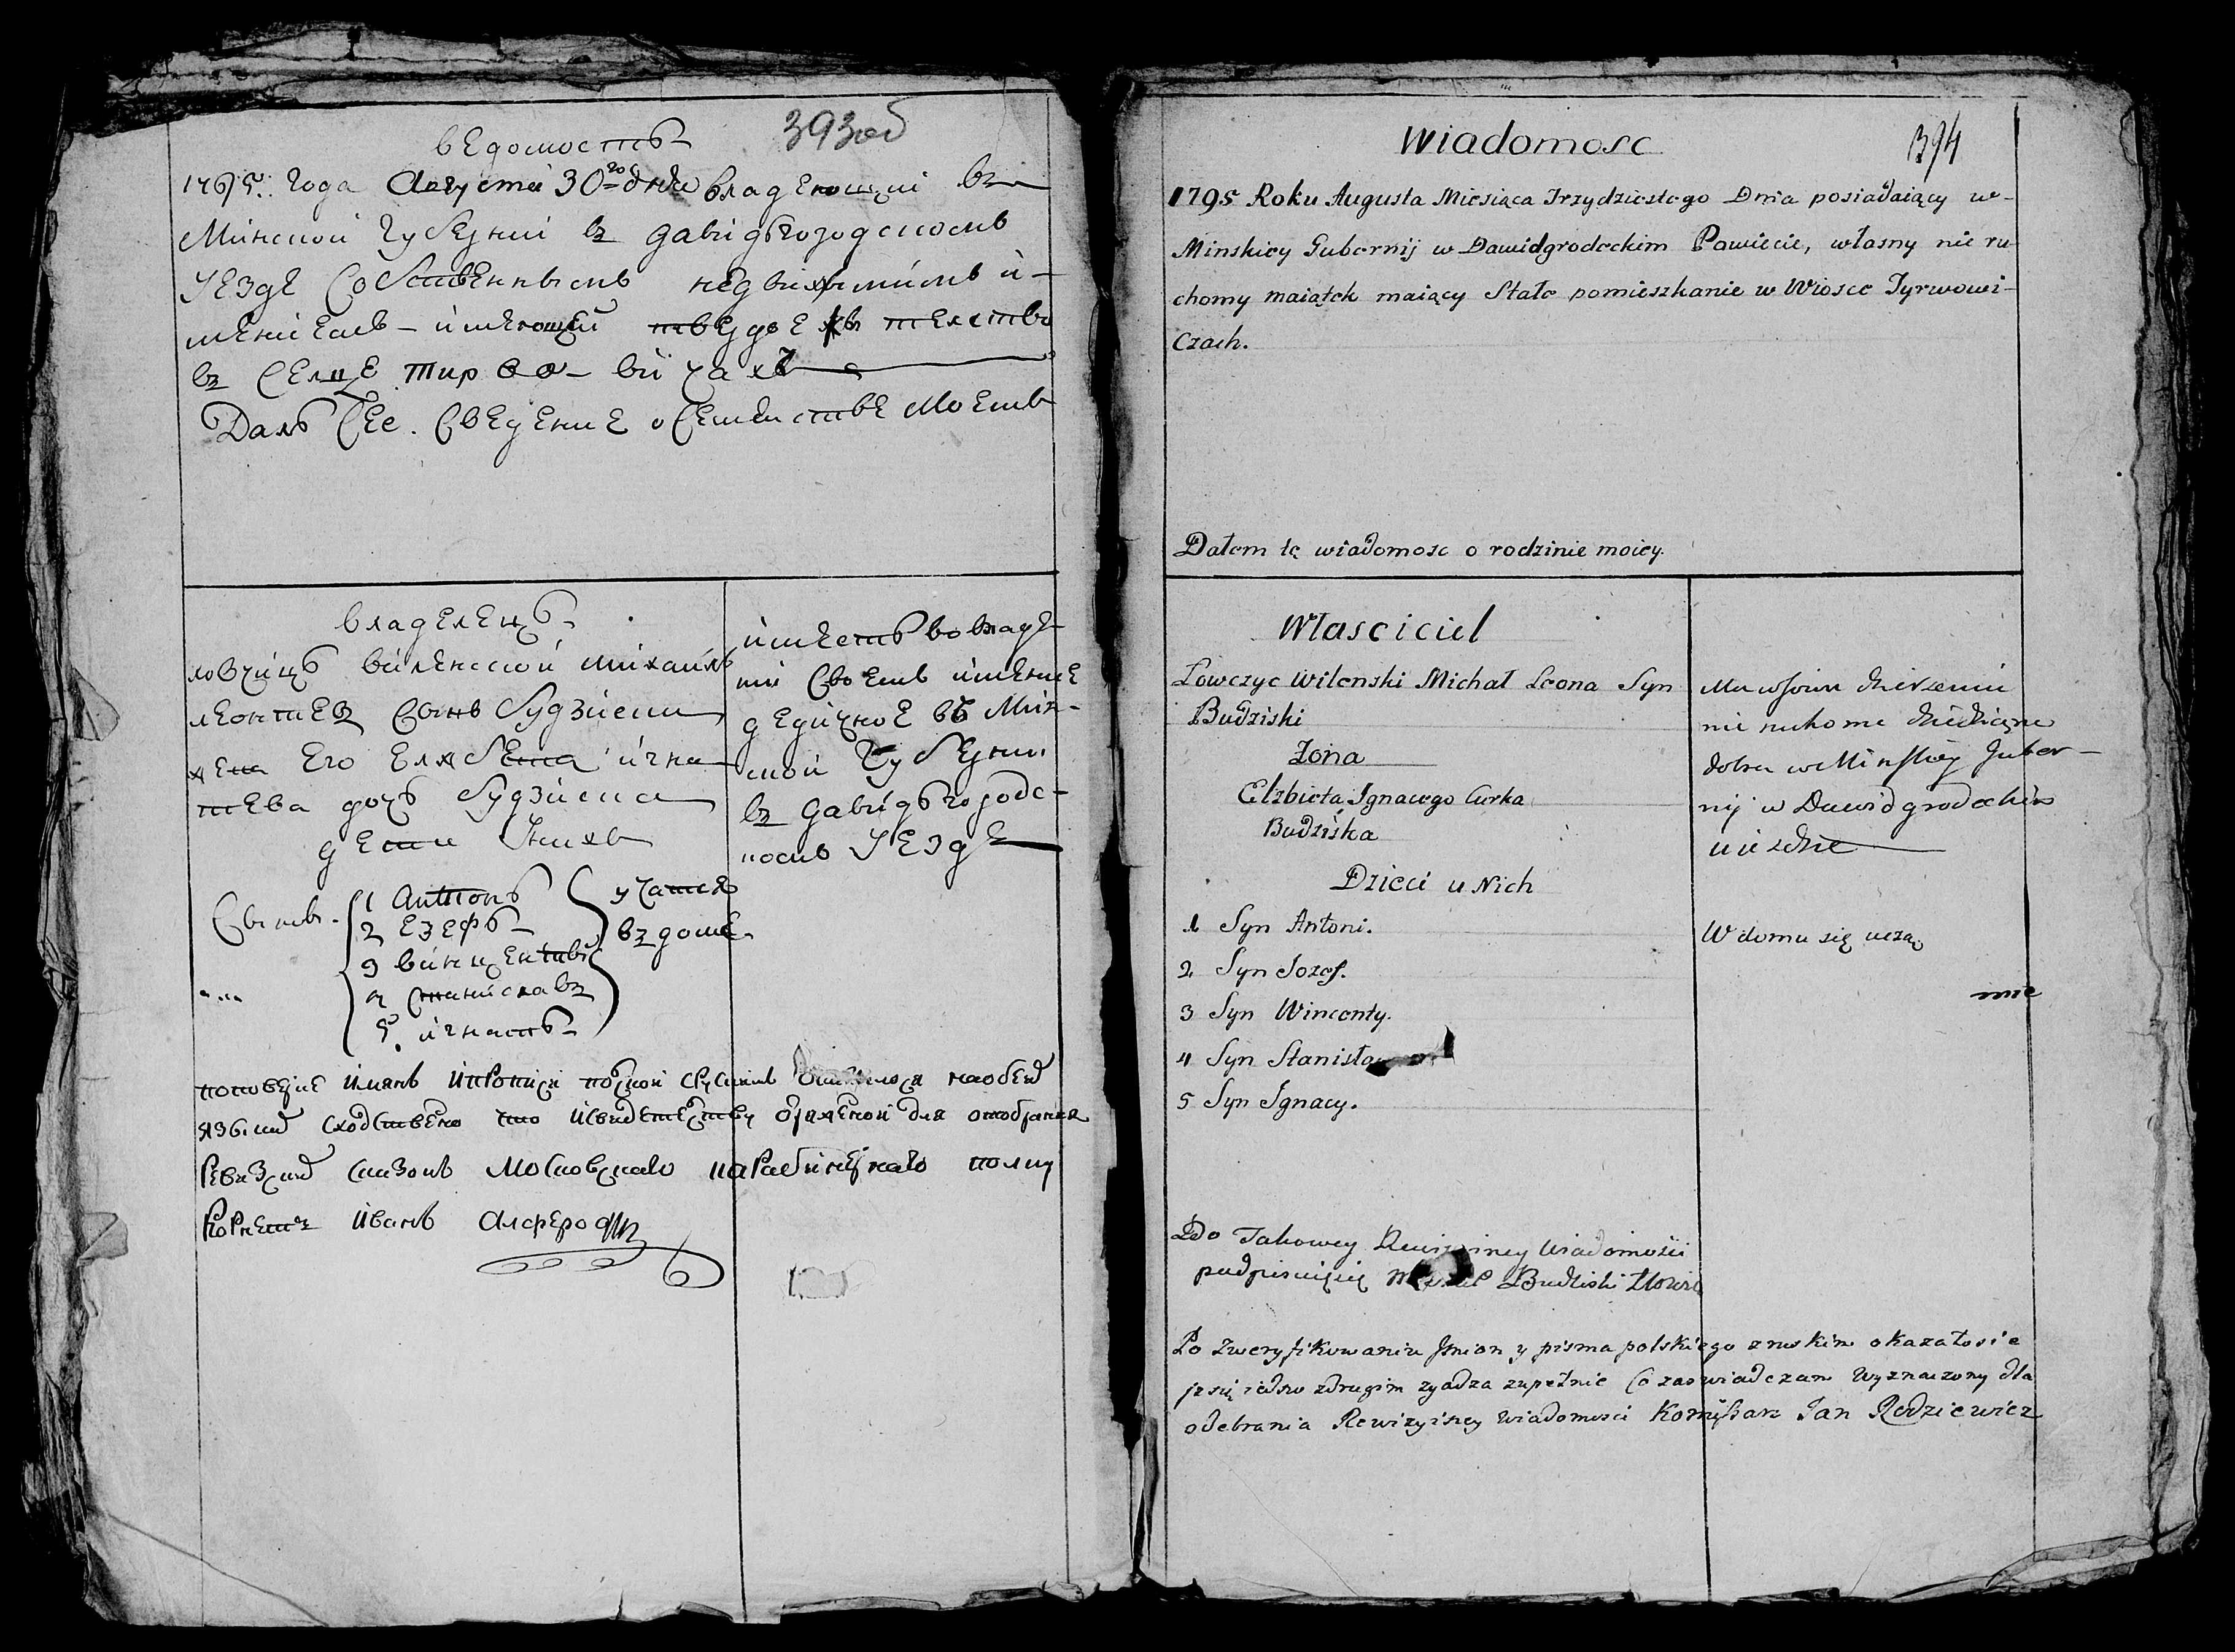 393об
ведомость
1795. года Августа 30го дня владеющий въ
Минской губернии въ давидъгородскомъ
уезде собственнымъ недвижимимъ и-
мениемъ имеющей твердое жителство
въ селце тирво-вичахъ
Далъ сее сведение о семействе моемъ
владелецъ
ловчицъ виленской михаилъ
леонтевъ сынъ будзиски
жена его елжбета игна-
тева дочъ будзиска
дети у нихъ
сыновъ
1 антонъ
2 езефъ
3 винцентий
4 станиславъ
5. игнатъ
учатся
въ доме
иметъ во владе-
нии своемъ имение
дедичное въ Мин-
ской губернии
въ давидъгородс-
комъ уезде
по поверке имянъ и прописи полской с рускимъ оказалося на обеихъ
языкахъ сходственно что и свидетелствую определеной для отобрания
ревизскихъ сказокъ московскаго карабинернаго полку
корнетъ иванъ
394
Wiadomosc
1795 Roku Augusta Miesiąca Trzydziestego Dnia posiadaiący w-
Minskiey Gubernij w Dawidgrodeckim Powiecie, własny nie ru-
chomy maiątek maiący Stałe pomieszkanie w Wiosce Tyrwowi-
czach.
Dałem tę wiadomosc o rodzinie moiey.
Własciciel
Łowczyc Wilenski Michał Leona Syn
Budziski
Zona
Elzbieta Ignacego Curka
Budziska
Dzieci u Nich
1 Syn Antoni.
2 Syn Jozef.
3 Syn Wincenty.
4 Syn Stanisław
5 Syn Ignacy.
Ma w swoim dzierzeniu
nie ruchome dziedziczne
dobra w Minskiey Guber-
nij w Dawidgrodeckim
uiezdzie
W domu się uczą
Do Takowey Rewizyiney Wiadomości
podpisuięsię Michał Budziski Łowic
Po zweryfikowaniu Imion y pisma polskiego z ruskim okazało sie
iz się iedno z drugim zgadza zupełnie Co zaswiadczam Wyznaczony dla
odebrania Rewizyiney wiadomosci Komissarz Jan Redziewicz